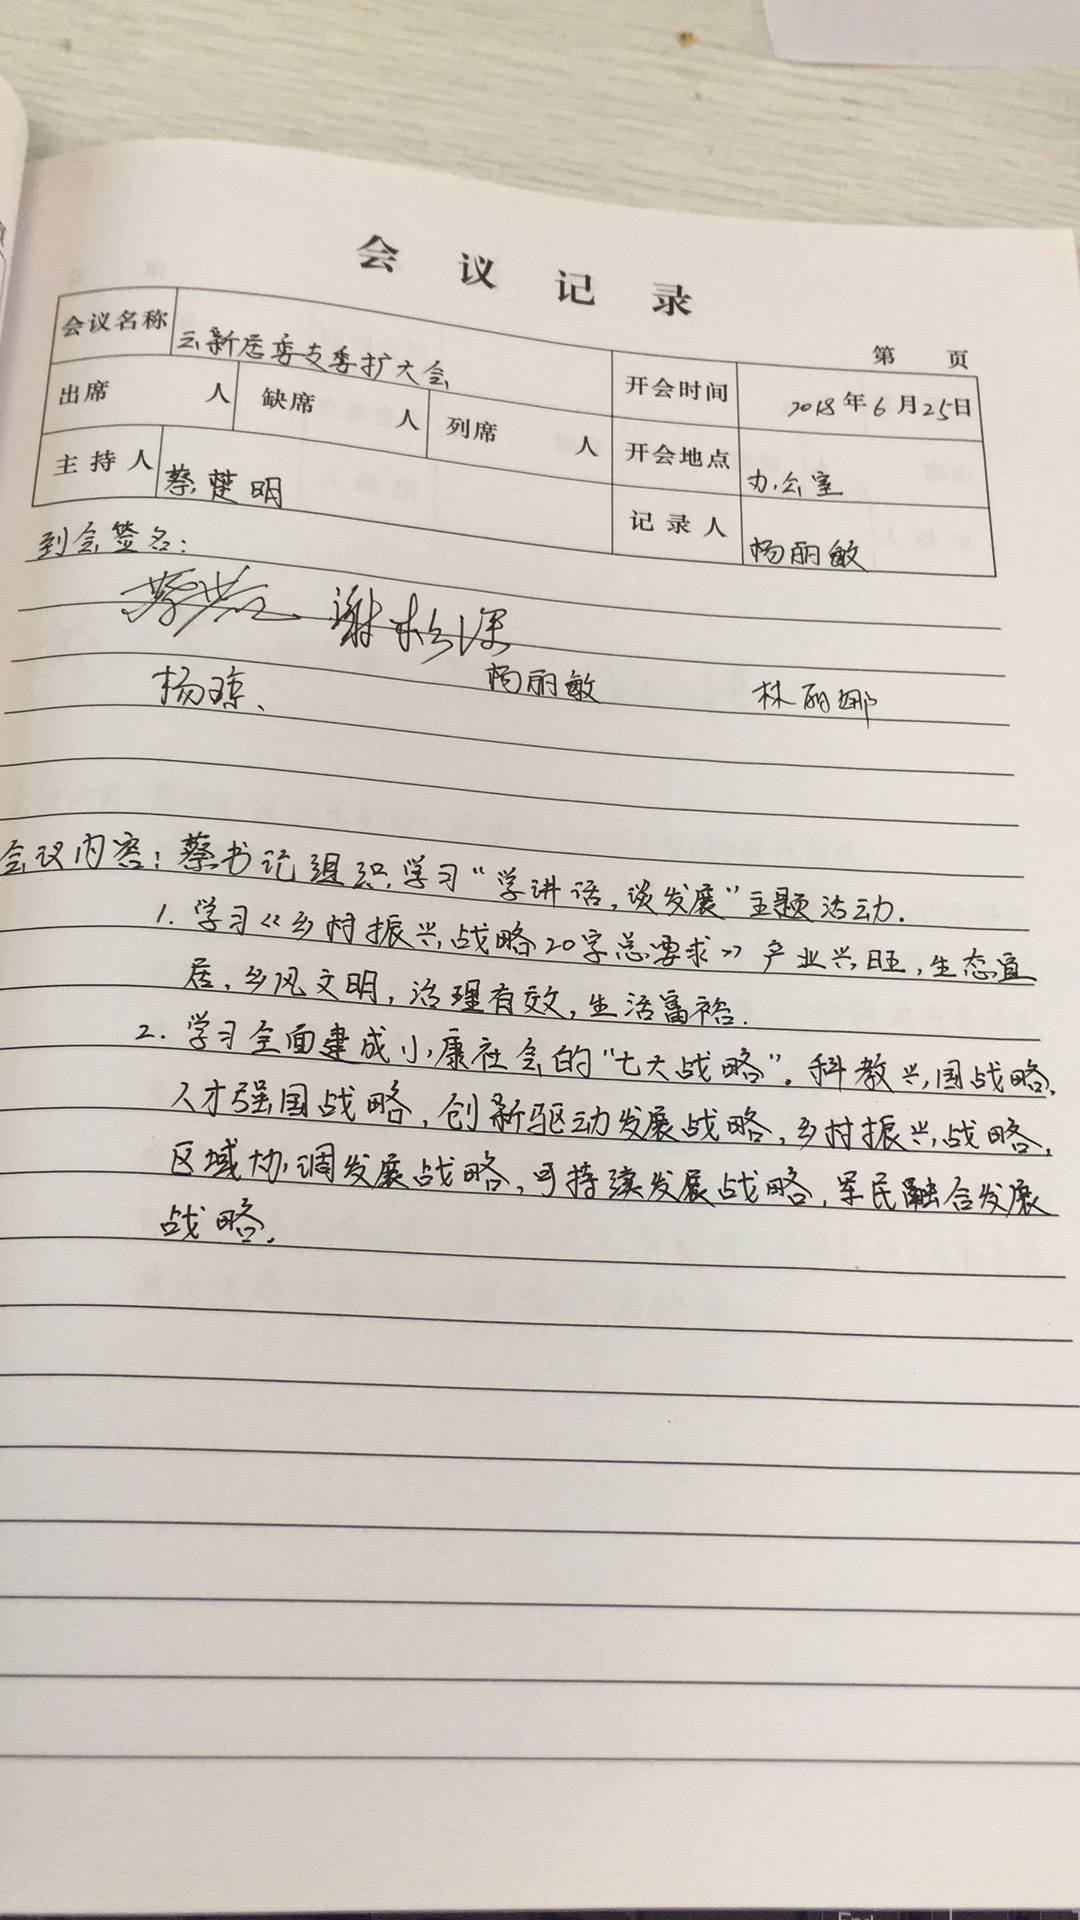 会议记录
第 页
会议名称 云新居委支委扩大会 开会时间 2018年6月25日
出席 人 缺席 人 列席 人 开会地点 办公室
主持人 蔡楚明 记录人 杨丽敏
到会签名:
谢松深
杨琼、 杨丽敏 林丽娜
会议内容:蔡书记组织学习“学讲话,谈发展”主题活动.
1. 学习《乡村振兴战略20字总要求》产业兴旺,生态宜
居,乡风文明,治理有效,生活富裕.
2. 学习全面建成小康社会的“七大战略”。科教兴国战略,
人才强国战略,创新驱动发展战略,乡村振兴战略,
区域协调发展战略,可持续发展战略,军民融合发展
战略.
End